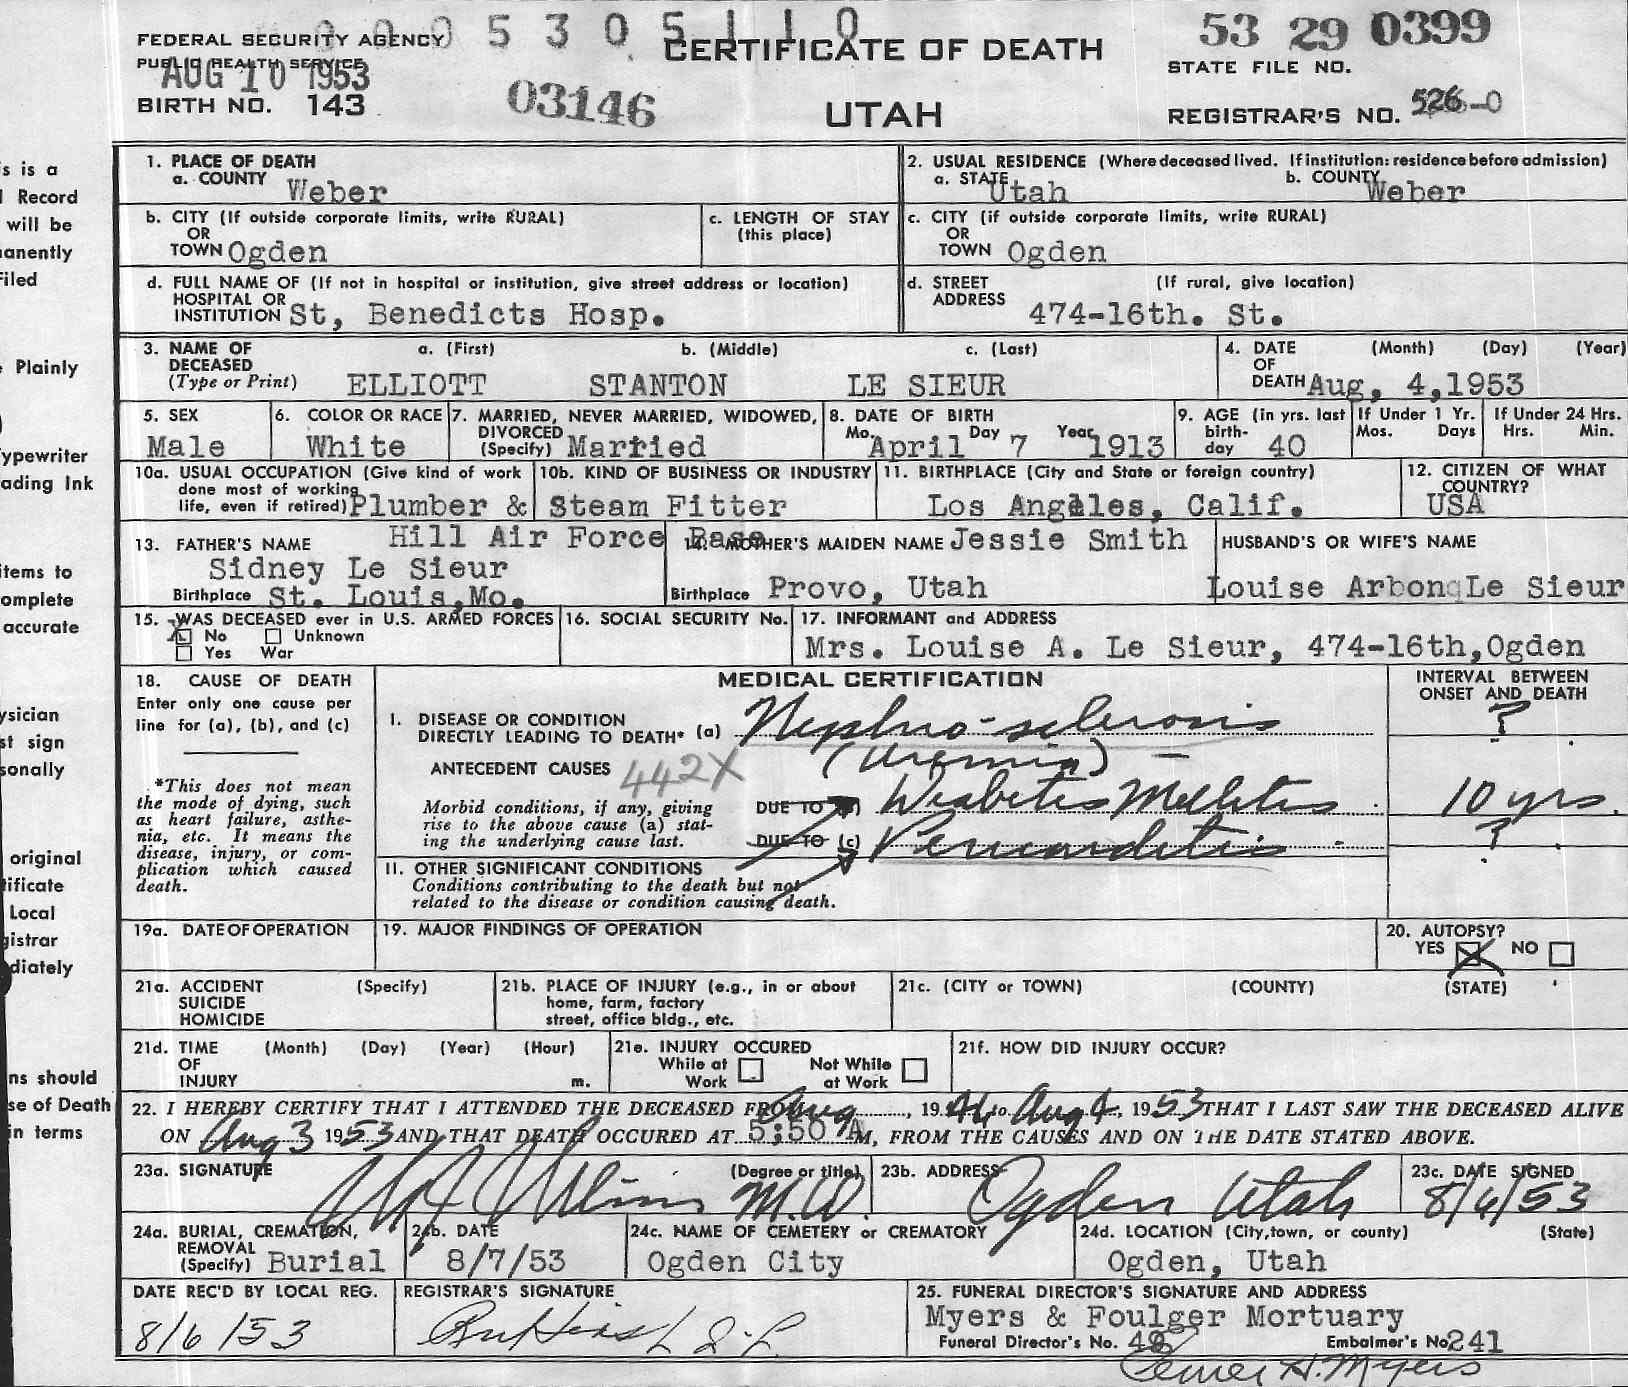 0 0 0 5 3 0 5 1 1 0
53 29 0399
FEDERAL SECURITY AGENCY
PUBLIC HEALTH SERVICE
AUG 10 1953
CERTIFICATE OF DEATH
STATE FILE NO.
BIRTH NO. 143
03146
UTAH
REGISTRAR'S NO. 526-0
s is a
Record
will be
anently
Filed
Plainly
ypewriter
ading Ink
items to
omplete
accurate
ysician
st sign
sonally
original
tificate
Local
gistrar
diately
ns should
se of Death
in terms
1. PLACE OF DEATH
a. COUNTY Weber
2. USUAL RESIDENCE (Where deceased lived. If institution: residence before admission)
a. STATE Utah b. COUNTY Weber
b. CITY (If outside corporate limits, write RURAL)
OR
TOWN Ogden
c. LENGTH OF STAY
(this place)
c. CITY (if outside corporate limits, write RURAL)
OR
TOWN Ogden
d. FULL NAME OF (If not in hospital or institution, give street address or location)
HOSPITAL OR
INSTITUTION St, Benedicts Hosp.
d. STREET (If rural, give location)
ADDRESS 474-16th. St.
3. NAME OF a. (First) b. (Middle) c. (Last)
DECEASED
(Type or Print) ELLIOTT STANTON LE SIEUR
4. DATE (Month) (Day) (Year)
OF
DEATH Aug, 4,1953
5. SEX
Male
6. COLOR OR RACE
White
7. MARRIED, NEVER MARRIED, WIDOWED,
DIVORCED
(Specify) Married
8. DATE OF BIRTH
Mo. April Day 7 Year 1913
9. AGE (in yrs. last
birth-
day 40
If Under 1 Yr.
Mos. Days
If Under 24 Hrs.
Hrs. Min.
10a. USUAL OCCUPATION (Give kind of work
done most of working
life, even if retired) Plumber &
10b. KIND OF BUSINESS OR INDUSTRY
Steam Fitter
Hill Air Force Base
11. BIRTHPLACE (City and State or foreign country)
Los Angeles, Calif.
12. CITIZEN OF WHAT
COUNTRY?
USA
13. FATHER'S NAME
Sidney Le Sieur
Birthplace St. Louis,Mo.
14. MOTHER'S MAIDEN NAME Jessie Smith
Birthplace Provo, Utah
HUSBAND'S OR WIFE'S NAME
Louise Arbon Le Sieur
15. WAS DECEASED ever in U.S. ARMED FORCES
X No Unknown
Yes War
16. SOCIAL SECURITY No.
17. INFORMANT and ADDRESS
Mrs. Louise A. Le Sieur, 474-16th,Ogden
18. CAUSE OF DEATH
Enter only one cause per
line for (a), (b), and (c)
*This does not mean
the mode of dying, such
as heart failure, asthe-
nia, etc. It means the
disease, injury, or com-
plication which caused
death.
MEDICAL CERTIFICATION
INTERVAL BETWEEN
ONSET AND DEATH
I. DISEASE OR CONDITION
DIRECTLY LEADING TO DEATH* (a) Nephro-sclerosis ?
(Uremia)
ANTECEDENT CAUSES 442X
Morbid conditions, if any, giving
rise to the above cause (a) stat-
ing the underlying cause last.
DUE TO (b) Diabetes Mellitus 10 yrs.
DUE TO (c) Pericarditis ?
II. OTHER SIGNIFICANT CONDITIONS
Conditions contributing to the death but not
related to the disease or condition causing death.
19a. DATE OF OPERATION
19. MAJOR FINDINGS OF OPERATION
20. AUTOPSY?
YES X NO
21a. ACCIDENT (Specify)
SUICIDE
HOMICIDE
21b. PLACE OF INJURY (e.g., in or about
home, farm, factory
street, office bldg., etc.
21c. (CITY or TOWN) (COUNTY) (STATE)
21d. TIME (Month) (Day) (Year) (Hour)
OF
INJURY m.
21e. INJURY OCCURED
While at Work Not While at Work
21f. HOW DID INJURY OCCUR?
22. I HEREBY CERTIFY THAT I ATTENDED THE DECEASED FROM Aug, 19 to Aug 4, 1953 THAT I LAST SAW THE DECEASED ALIVE
ON Aug 3 1953 AND THAT DEATH OCCURED AT 5:50 A M, FROM THE CAUSES AND ON THE DATE STATED ABOVE.
23a. SIGNATURE (Degree or title)
M.D.
23b. ADDRESS
Ogden Utah
23c. DATE SIGNED
8/6/53
24a. BURIAL, CREMATION,
REMOVAL
(Specify) Burial
24b. DATE
8/7/53
24c. NAME OF CEMETERY or CREMATORY
Ogden City
24d. LOCATION (City,town, or county) (State)
Ogden, Utah
DATE REC'D BY LOCAL REG.
8/6/53
REGISTRAR'S SIGNATURE
25. FUNERAL DIRECTOR'S SIGNATURE AND ADDRESS
Myers & Foulger Mortuary
Funeral Director's No. 48 Embalmer's No 241
H. Myers